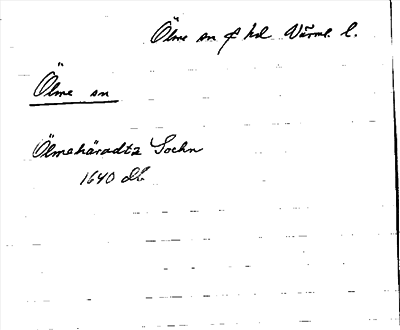 Ölme sn Ö hd Värml. l.
Ölme sn
Ölmehäradtz Sochn
1640 db